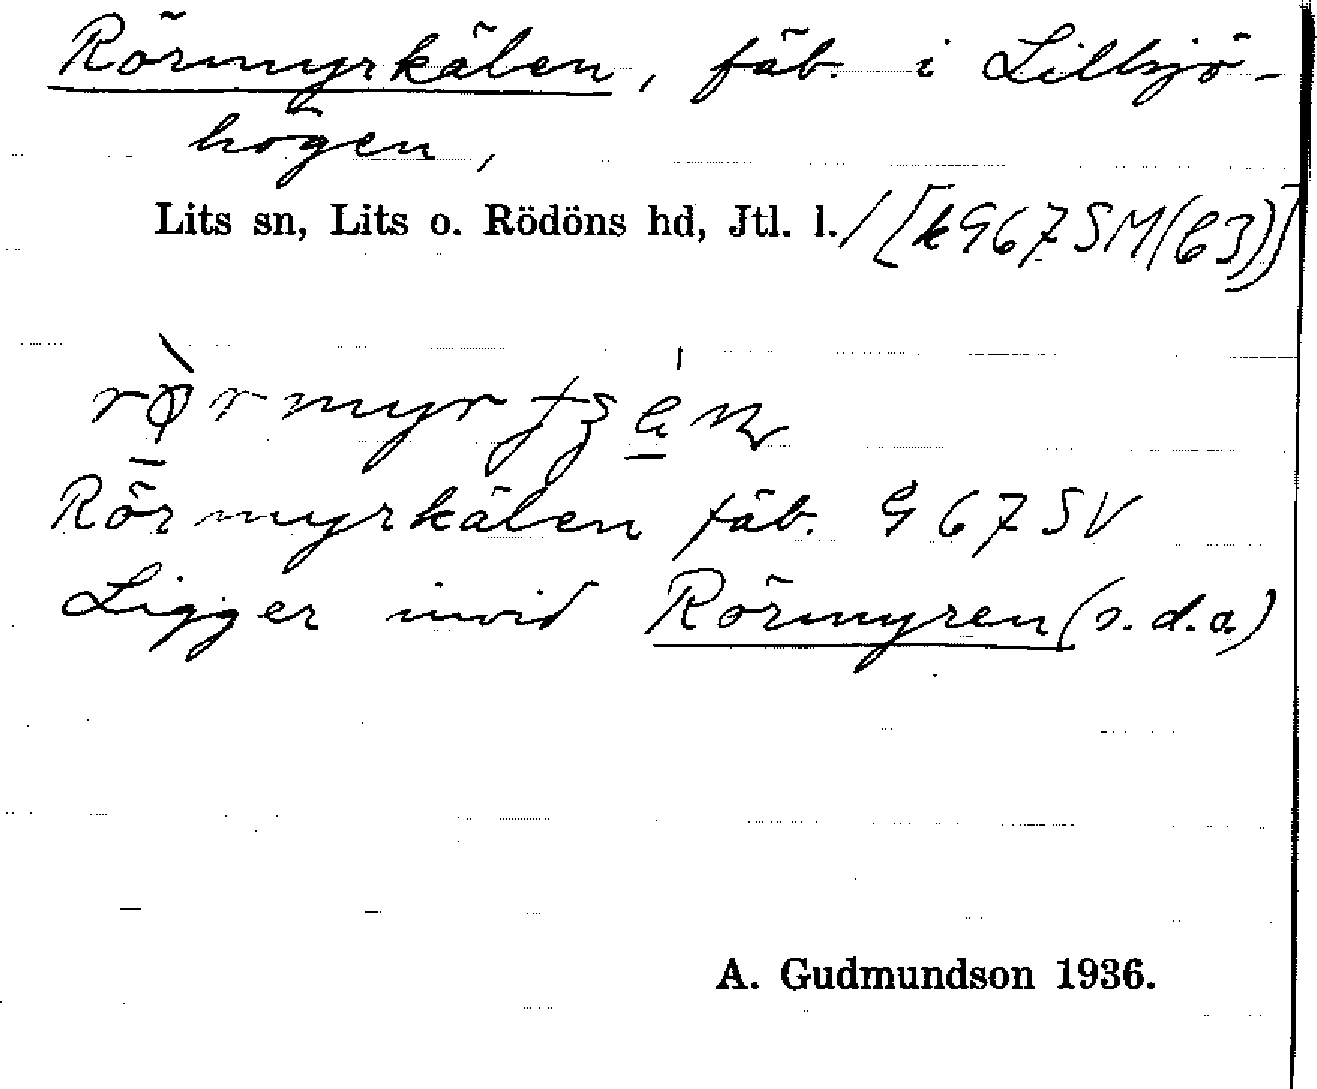 Rörmyrkälen, fäb. i Lillsjö-
högen,
Lits sn, Lits o. Rödöns hd, Jtl. l. / [k G67SM(63)]
Rörmyrkälen fäb. G67SV
Ligger invid Rörmyren (s.d.a)
A. Gudmundson 1936.